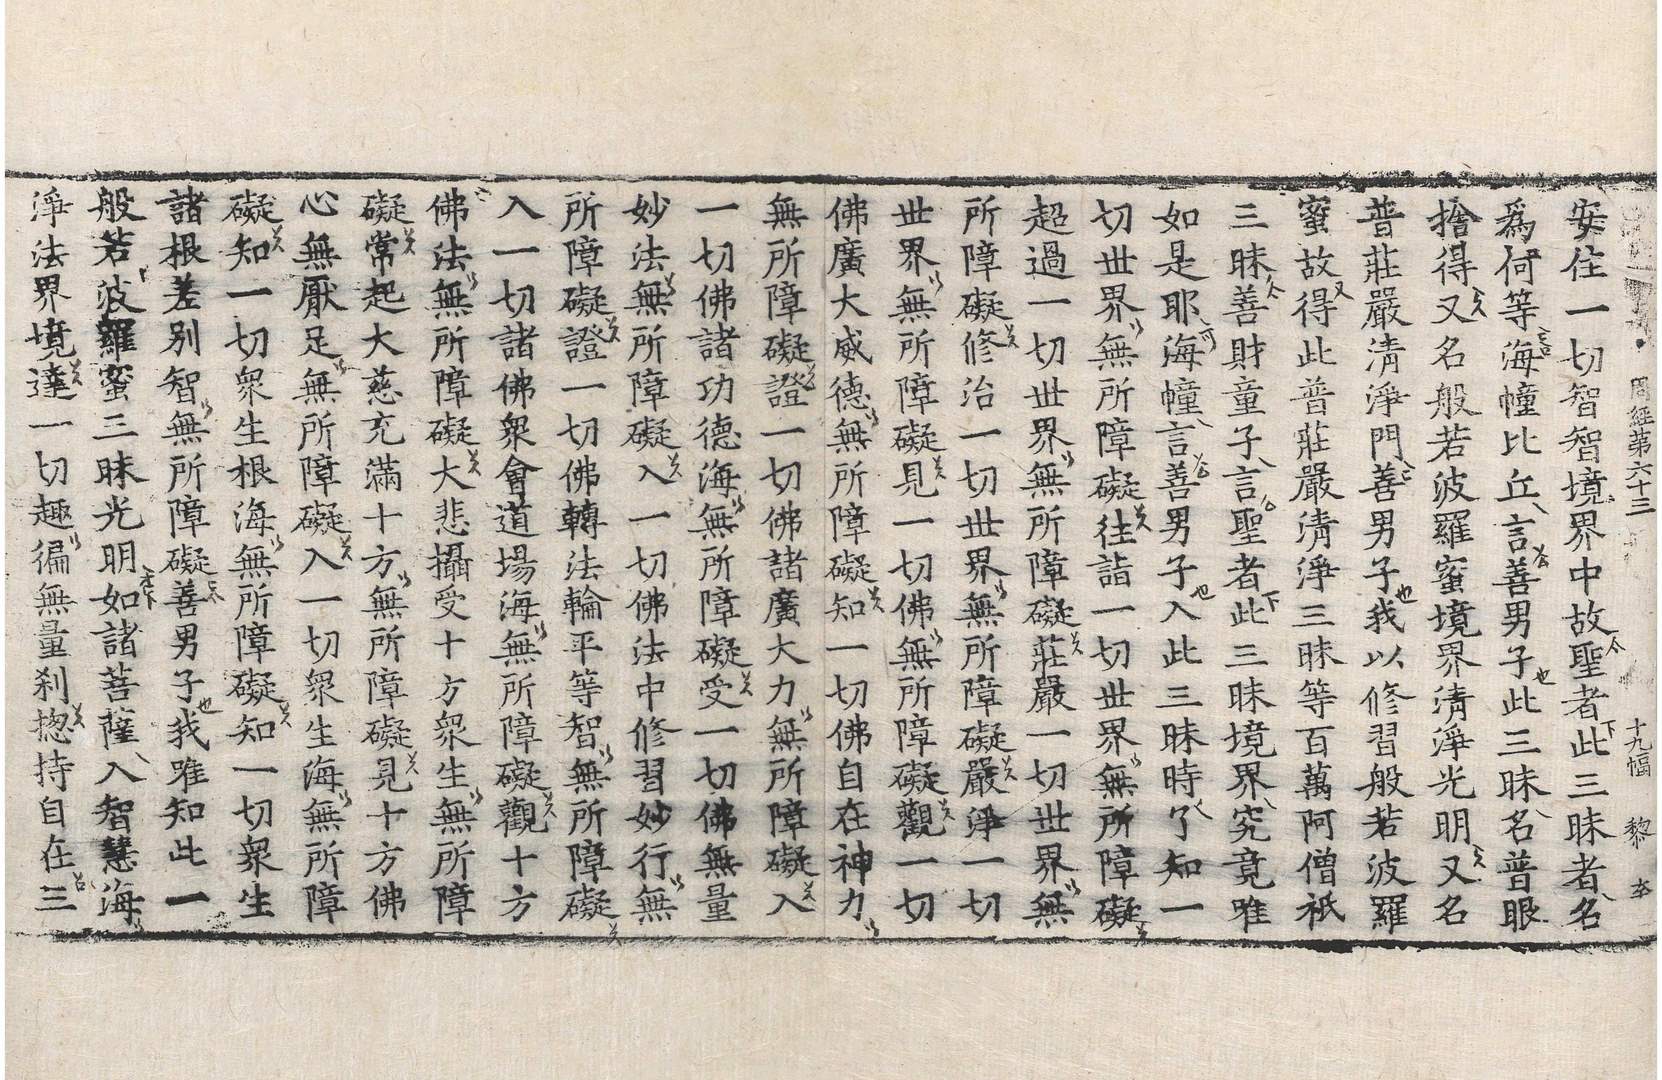 周經第六十三 十九幅 黎
安住一切智智境界中故聖者此三昧者名
為何等海幢比丘言善男子此三昧名普眼
捨得又名般若波羅蜜境界清淨光明又名
普莊嚴清淨門善男子我以修習般若波羅
蜜故得此普莊嚴清淨三昧等百萬阿僧祇
三昧善財童子言聖者此三昧境界究竟唯
如是耶海幢言善男子入此三昧時了知一
切世界無所障礙往詣一切世界無所障礙
超過一切世界無所障礙莊嚴一切世界無
所障礙修治一切世界無所障礙嚴淨一切
世界無所障礙見一切佛無所障礙觀一切
佛廣大威德無所障礙知一切佛自在神力
無所障礙證一切佛諸廣大力無所障礙入
一切佛諸功德海無所障礙受一切佛無量
妙法無所障礙入一切佛法中修習妙行無
所障礙證一切佛轉法輪平等智無所障礙
入一切諸佛衆會道場海無所障礙觀十方
佛法無所障礙大悲攝受十方衆生無所障
礙常起大慈充滿十方無所障礙見十方佛
心無厭足無所障礙入一切衆生海無所障
礙知一切衆生根海無所障礙知一切衆生
諸根差別智無所障礙善男子我唯知此一
般若波羅蜜三昧光明如諸菩薩入智慧海
淨法界境達一切趣徧無量刹揔持自在三